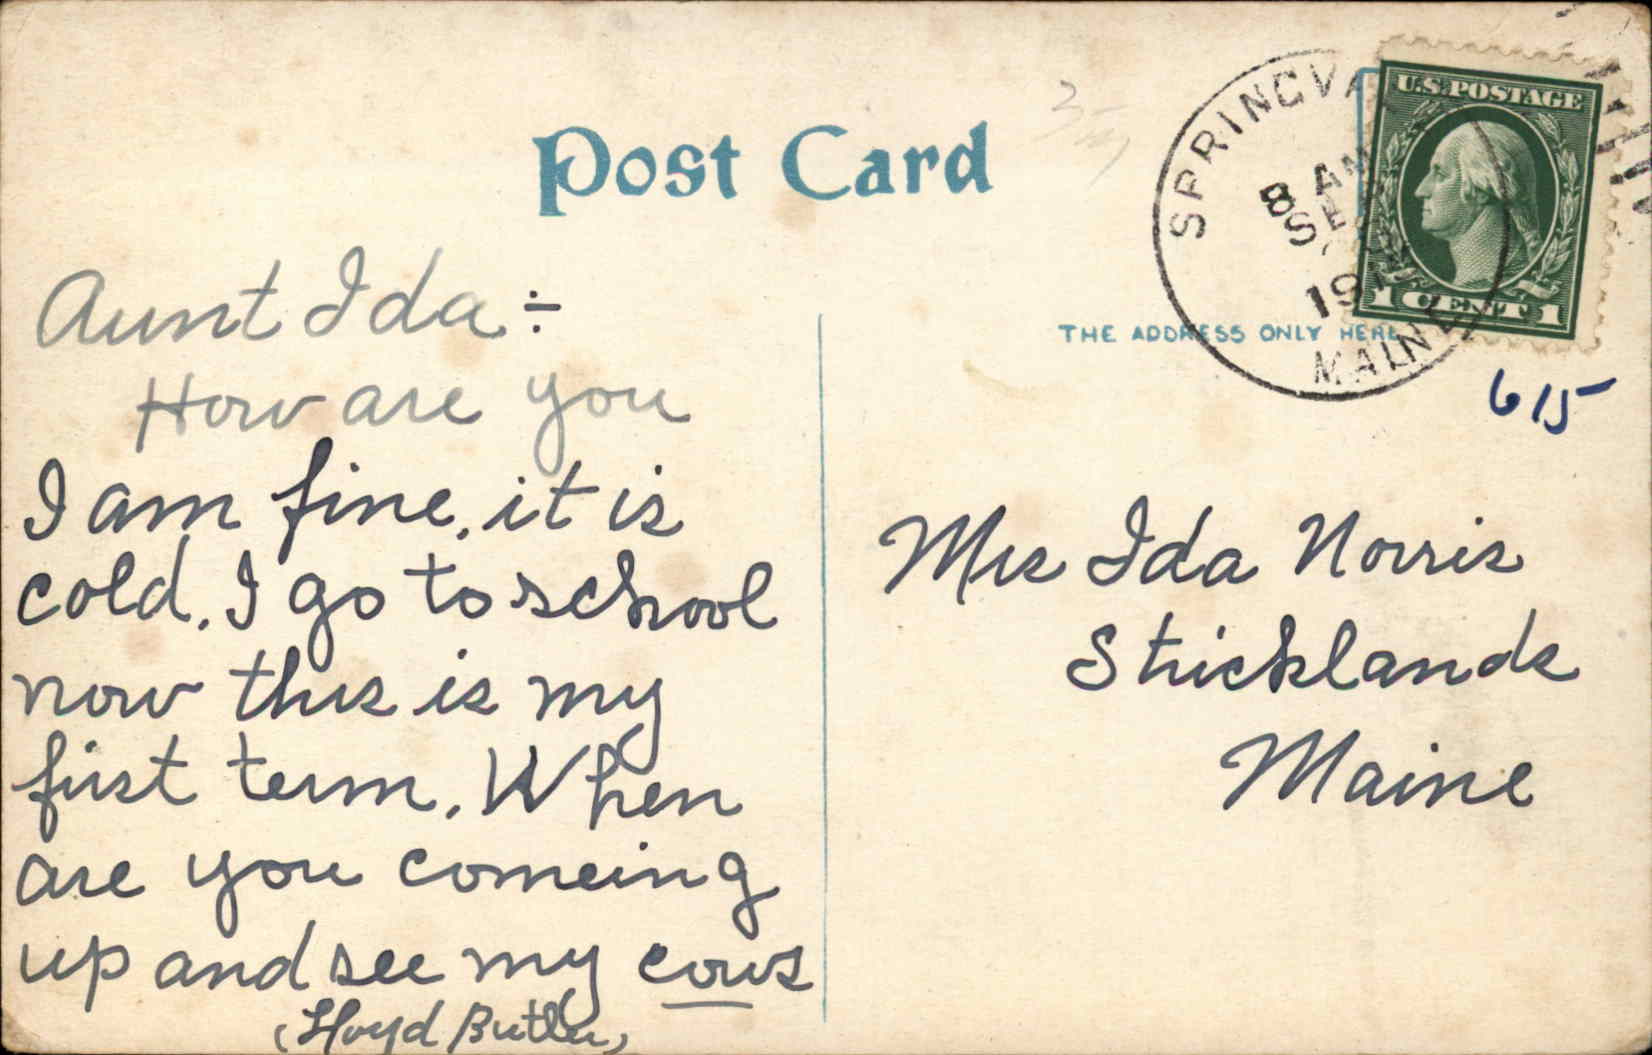 Post Card
SPRINGVA
8 AM
SEP
191
MAINE
U.S. POSTAGE
1 CENT 1
THE ADDRESS ONLY HERE
615
Aunt Ida ÷
How are you
I am fine, it is
cold. I go to school
now this is my
first term. When
are you comeing
up and see my cows
(Floyd Butler)
Mrs Ida Norris
Stricklands
Maine